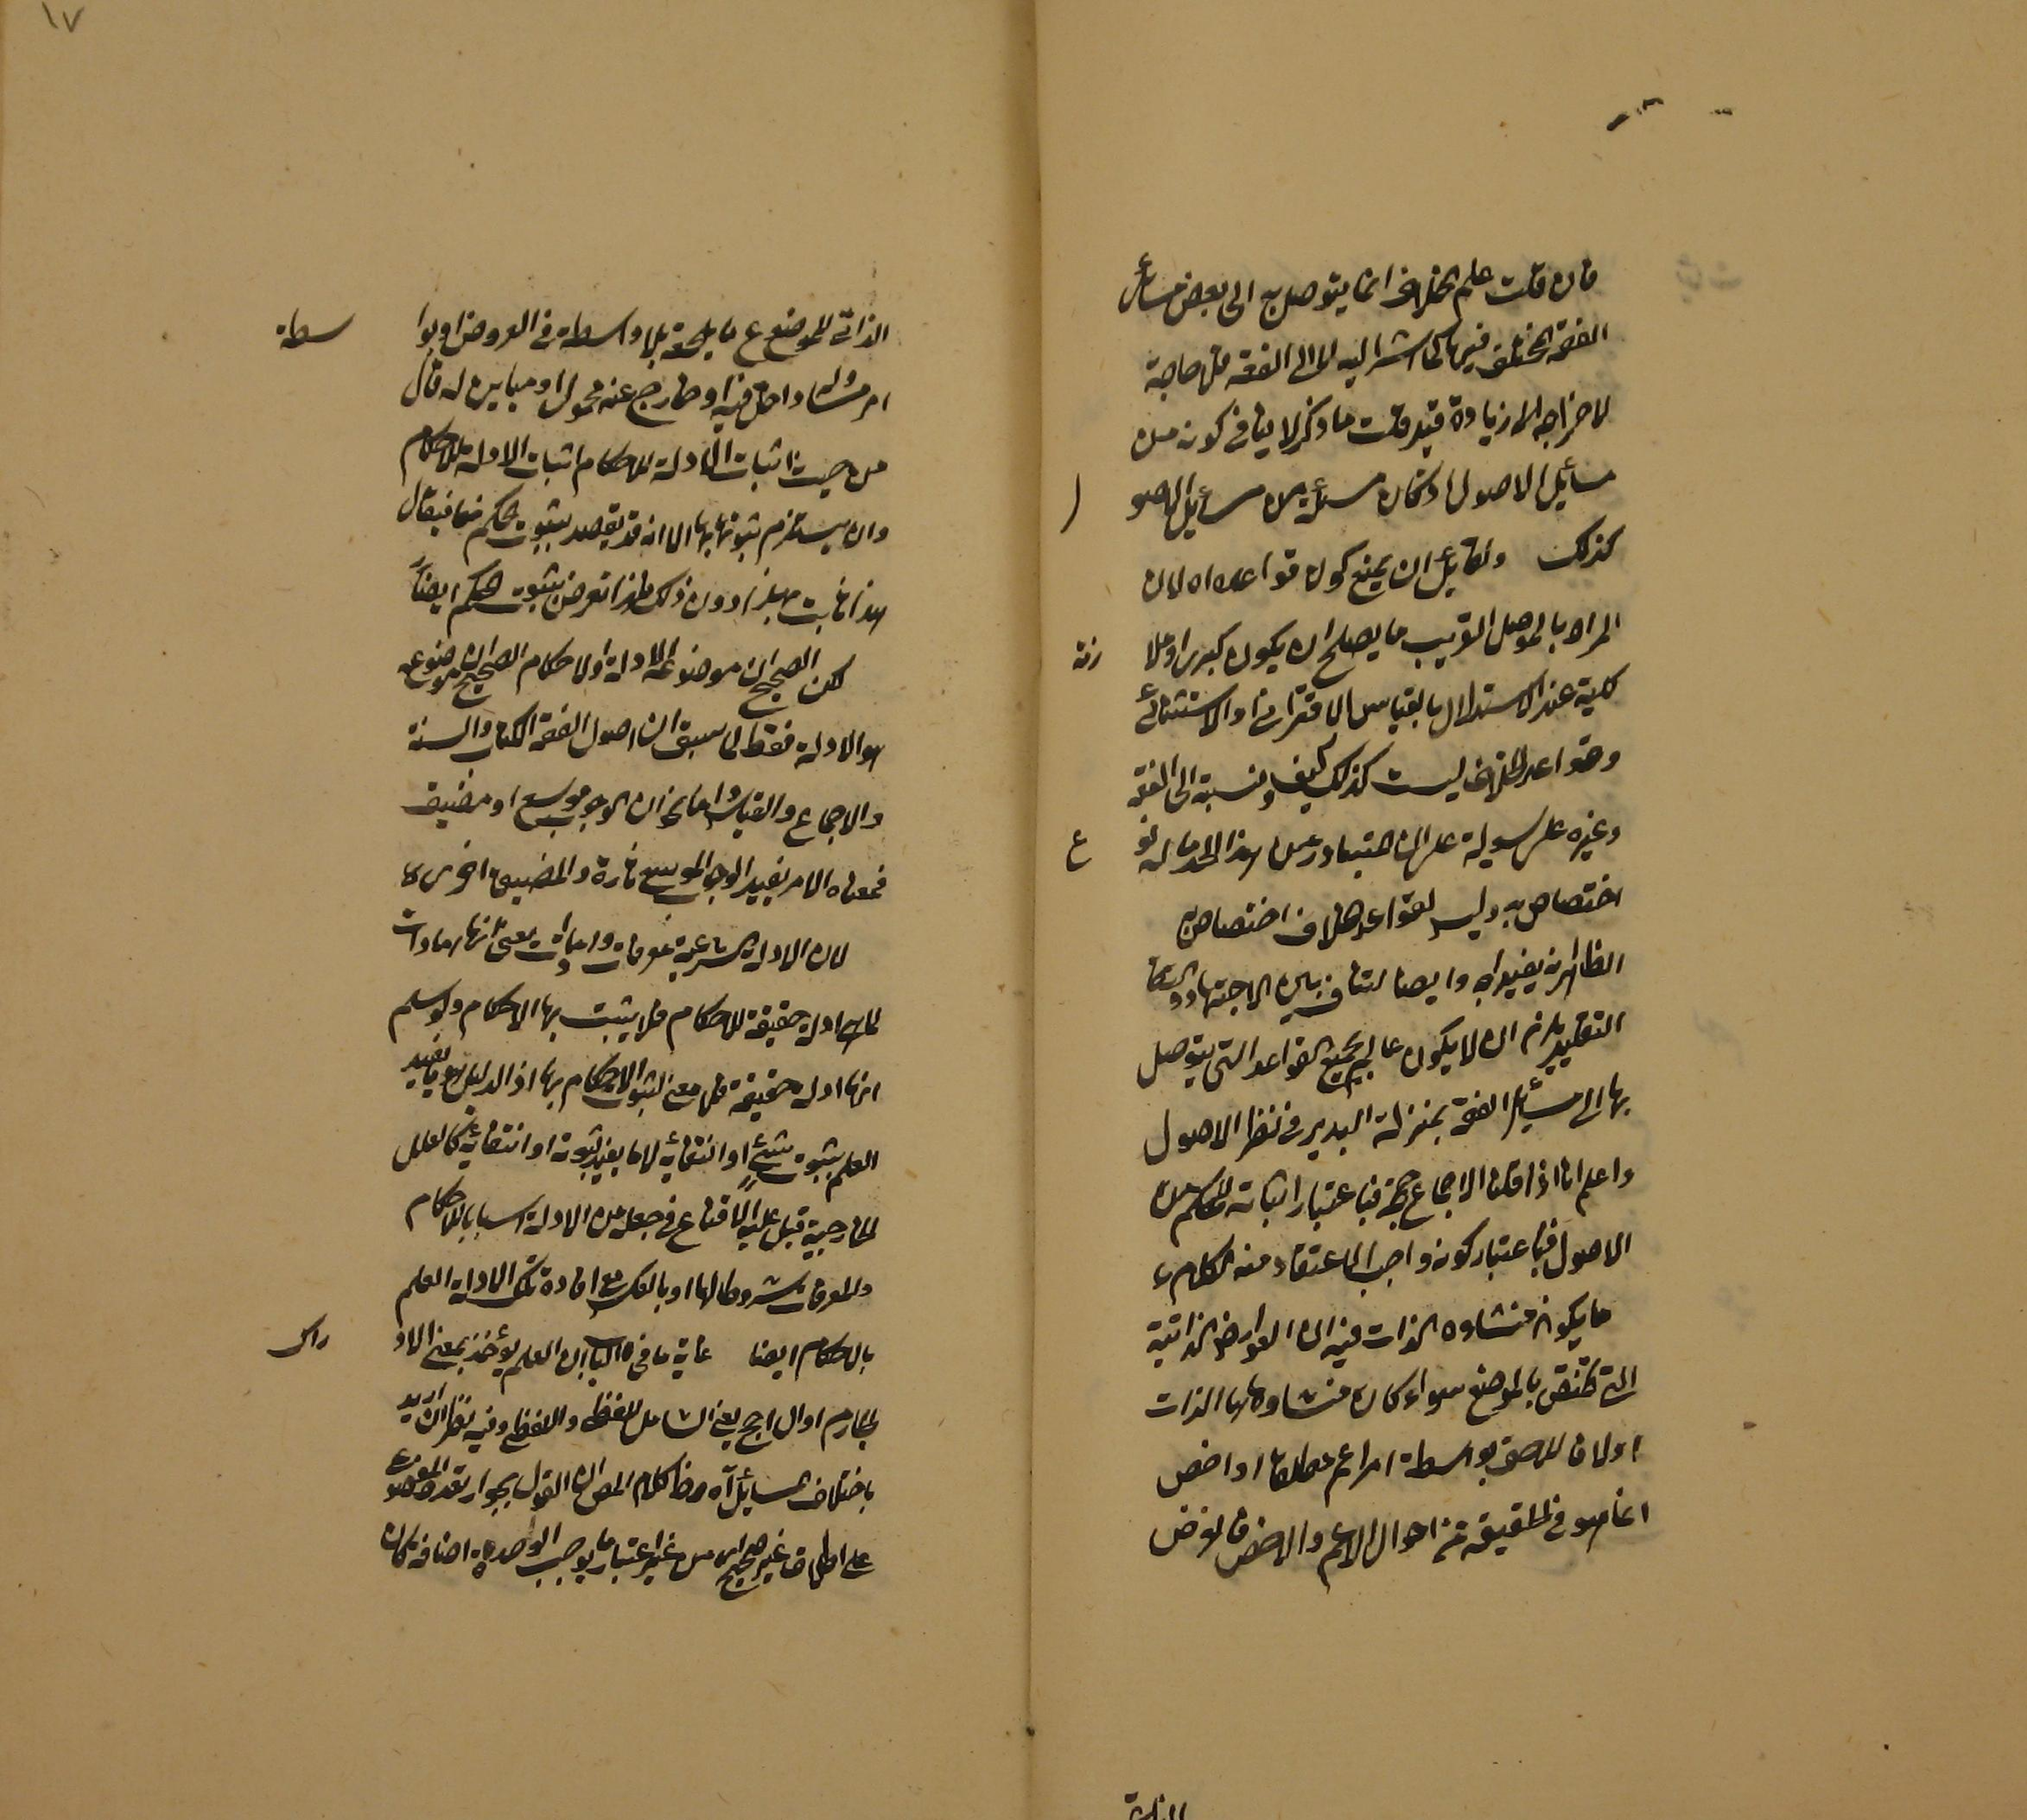 فان قلت علم الخلاف انما يتوصل به الى بعض مسائل
الفقه المختلف فيها كما اشر اليه لا الى الفقه فلا حاجة
لاخراجه الى زيادة قيد قلت ما ذكر لا ينافي كونه من
مسائل الاصول اذ كان مسئلة من مسائل الاصو ل
كذلك ولقايل ان يمنع كون قواعده اه لان
المراد بالموصل القريب ما يصلح ان يكون كبرى او ملا زمة
كلية عند الاستدلال بالقياس الاقتراني او الاستثنائي
وقواعد الخلاف ليست كذلك كيف ونسبته الى الفقه
وغيره على السوية على ان المتبادر من هذا الحد ما له نو ع
اختصاص به وليس لقواعد الخلاف اختصاص به
الظاهر انه يفيد اه وايضا لتنافي بين الاجتهاد و
التقليد يلزم ان لا يكون عالم بجميع القواعد التي يتوصل
بها الى مسائل الفقه بمنزلة البدير في نظر الاصول
واعلم انا اذا قلنا الاجماع حجة فباعتبار اثباته للحكم من
الاصول فباعتبار كونه واجب الاعتقاد منه الكلام
ما يكون منشاوه الذات فيه ان العوارض الذاتية
التي تختص بالموضع سواء كان منشاوها الذات
اولا فاللاحق بواسطة امر اعم مطلقا او اخص
انما هو في الحقيقة من احوال الاعم والاخص فالعرض
١٧
الذاتي للموضوع ما يلحقه بلا واسطة في العروض او بوا سطة
امر مساو داخل فيه او خارج عنه محمول او مباين له قال
من حيث اثبات الادلة للاحكام اثبات الادلة للاحكام
وان يستلزم ثبوتها بها الا انه قد يقصد بثبوت الحكم منها فيقال
هذا ثابت بهذا دون ذلك فلذا تعرض بثبوت الحكم ايضا
لكن الصحيح ان موضوعه الادلة والاحكام الصحيح ان موضوعه
هو الادلة فقط لما سبق ان اصول الفقه الكتاب والسنة
والاجماع والقياس واما نحو ان الوجوب موسع او مضيق
فمعناه الامر يفيد الوجوب الموسع تارة والمضيق اخرى
لان الادلة الشرعية معرفات وامارات يعني انها امارات
لها ادلة حقيقة للاحكام فلا يثبت بها الاحكام ولو سلم
انها ادلة حقيقة فلا معنى لثبوت الاحكام بها اذ الدليل ما يفيد
العلم بثبوت شيء او انتفائه لا ما يفيد ثبوته او انتفائه كالعلل
الخارجية قيل عليه لا قناع في جعل من الادلة اسبابا للاحكام
والمعرفات شروطا لها او بالعكس مع افادة تلك الادلة العلم
بالاحكام ايضا غاية ما في الباب ان العلم يؤخذ بمعنى الاد راك
الجازم او الراجح يعني الشامل للفظي واللفظ وفيه نظر ان اريد
باختلاف المسائل اه هذا كلام المص ان القول بجواز تعدد الموضوع
على اطلاقه غير صحيح من غير اعتبار ما يوجب الوحدة اضافة كان